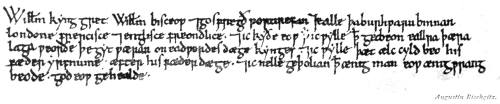 Willm kyng gret Willm bisceop ⁊ gosfregð portirefan ⁊ ealle þa burhwaru binnan
londone frencisce ⁊ englisce freondlice ⁊ ic kyðe eow þ ic wylle þ get beon eallra þæra
laga weorðe þe gyt wæran on eadwerdes dæge kynges ⁊ ic wylle þ ælc cyld beo his
fæder yrfnume æfter his fæder dæge ⁊ ic nelle geþolian þ ænig man eow ænig wrang
beode god eow gehealde
Augustin Rischgitz.